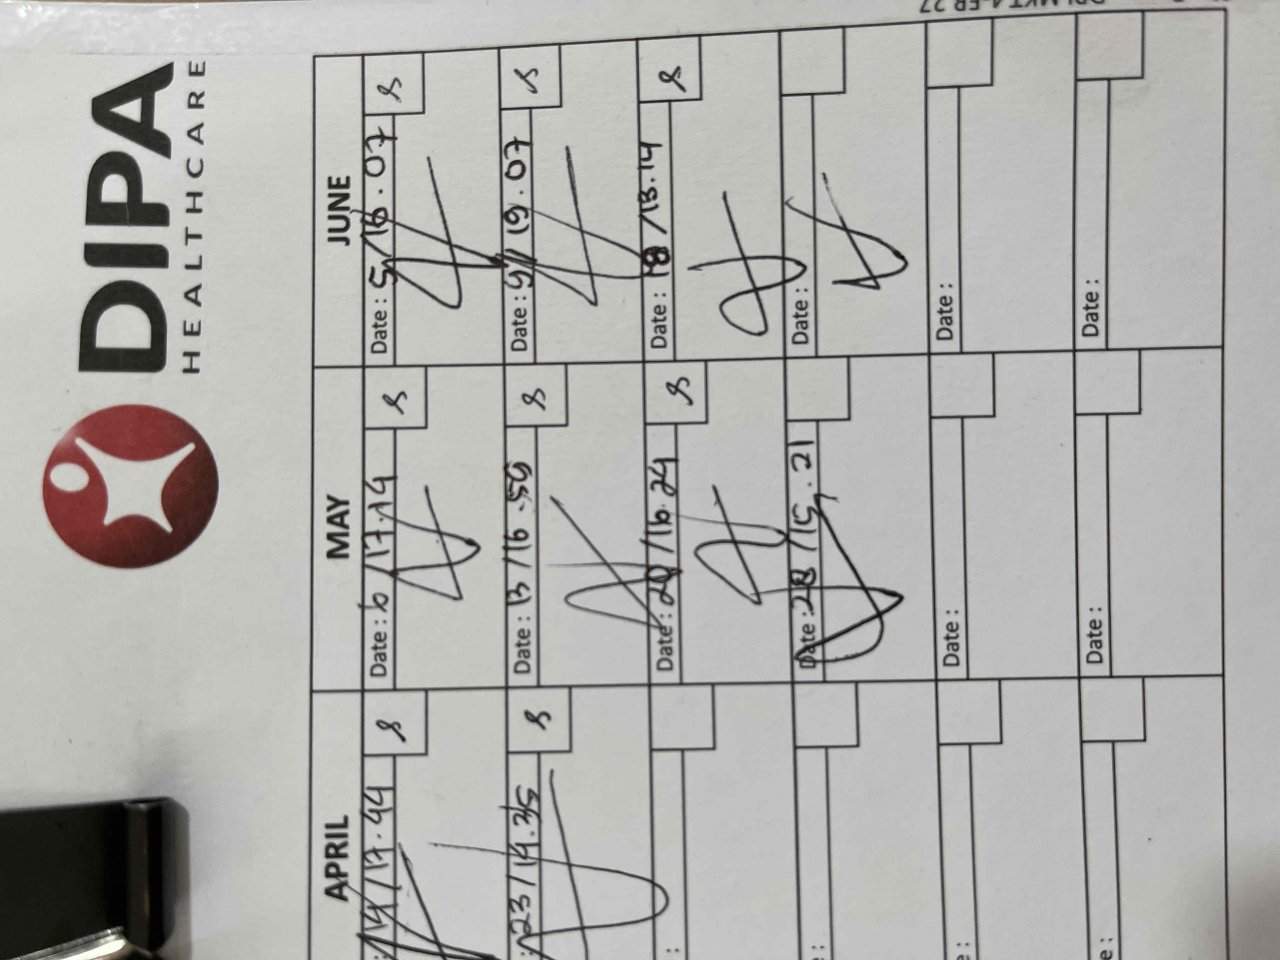 DIPA
HEALTHCARE
APRIL MAY JUNE
14/17.44 S
Date : 6/17.14 S
Date : 5/16.07 S
23/19.35 S
Date : 13/16.59 S
Date : 9/19.07 S
Date : 20/16.24 S
Date : 18/13.14 S
Date : 28/15.21
Date :
Date :
Date :
Date :
Date :